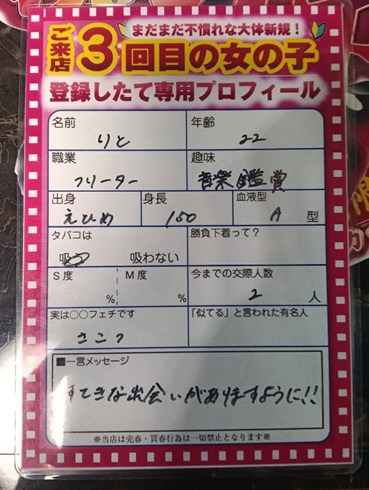 まだまだ不慣れな大体新規!
ご来店3回目の女の子
登録したて専用プロフィール
名前 りと 年齢 22
職業 フリーター 趣味 音楽鑑賞
出身 えひめ 身長 150 血液型 A 型
タバコは 吸う 吸わない 勝負下着って?
S度 % M度 % 今までの交際人数 2 人
実は○○フェチです さこつ 「似てる」と言われた有名人
■一言メッセージ
すてきな出会いがありますように!!
※当店は売春・買春行為は一切禁止となります※